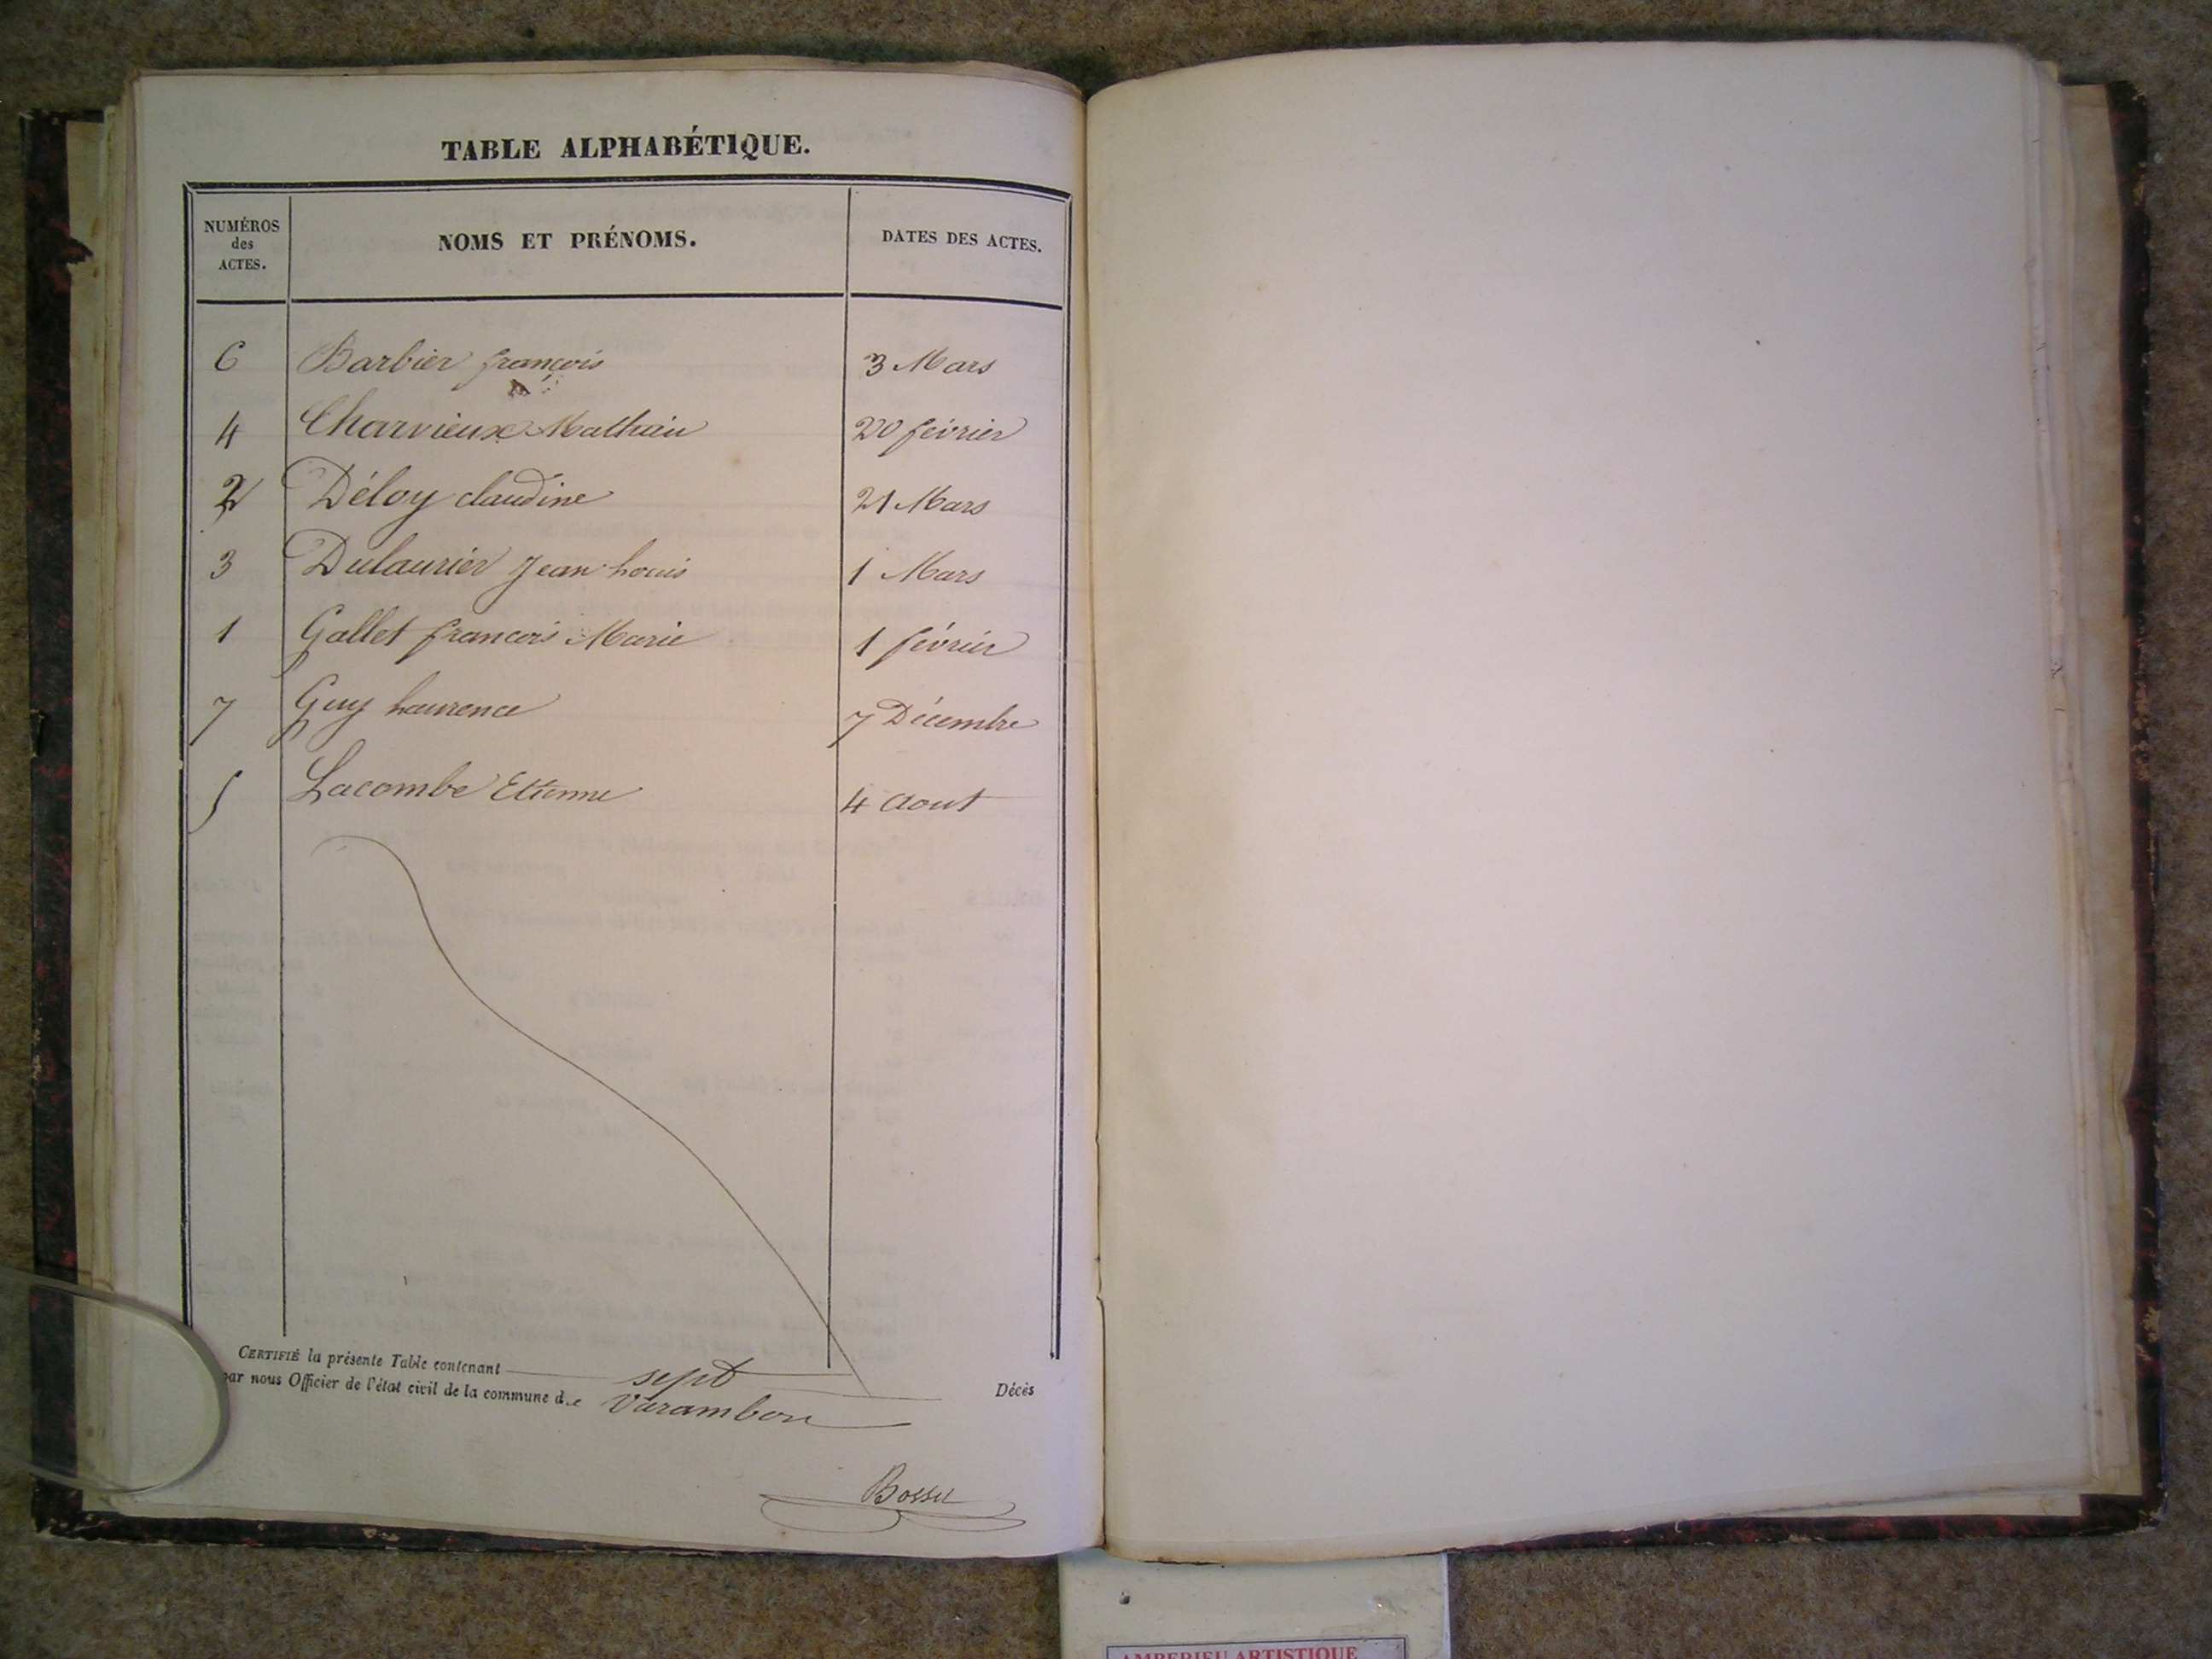 TABLE ALPHABÉTIQUE.
NUMÉROS des ACTES. NOMS ET PRÉNOMS. DATES DES ACTES.
6 Barbier françois 3 Mars
4 Charvieux Mathieu 20 février
2 Déloy claudine 21 Mars
3 Dulaurier Jean Louis 1 Mars
1 Gallet francois Marie 1 février
7 Guy Laurence 7 Décembre
5 Lacombe Etienne 4 Aout
CERTIFIÉ la présente Table contenant sept Décès
par nous Officier de l'état civil de la commune de Varambon
Bossu
AMBERIEU ARTISTIQUE